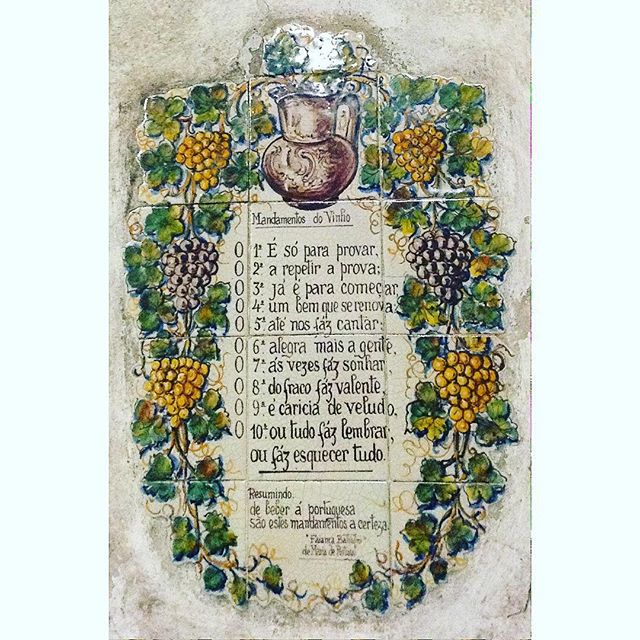 Mandamentos do Vinho
O 1ª É só para provar,
O 2ª a repetir a prova;
O 3ª já é para começar,
O 4ª um bem que se renova,
O 5ª até nos fáz cantar;
O 6ª alegra mais a gente,
O 7ª ás vezes fáz sonhar
O 8ª do fraco fáz valente,
O 9ª é caricia de veludo,
O 10ª ou tudo fáz lembrar,
ou fáz esquecer tudo.
Resumindo.
de beber á portuguesa
são estes mandamentos a certeza.
de Maria de